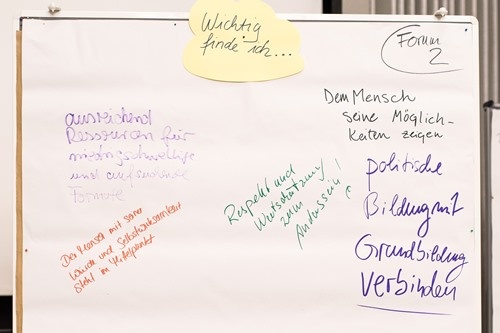 Wichtig
finde ich...
Forum
2
Dem Mensch
seine Möglich-
keiten zeigen
ausreichend
Ressourcen für
niedrigschwellige
und aufsuchende
Formate
Respekt und
Wertschätzung
zum
politische
Bildung mit
Grundbildung
verbinden
Der Mensch mit seiner
Würde und Selbstwirksamkeit
steht im Mittelpunkt